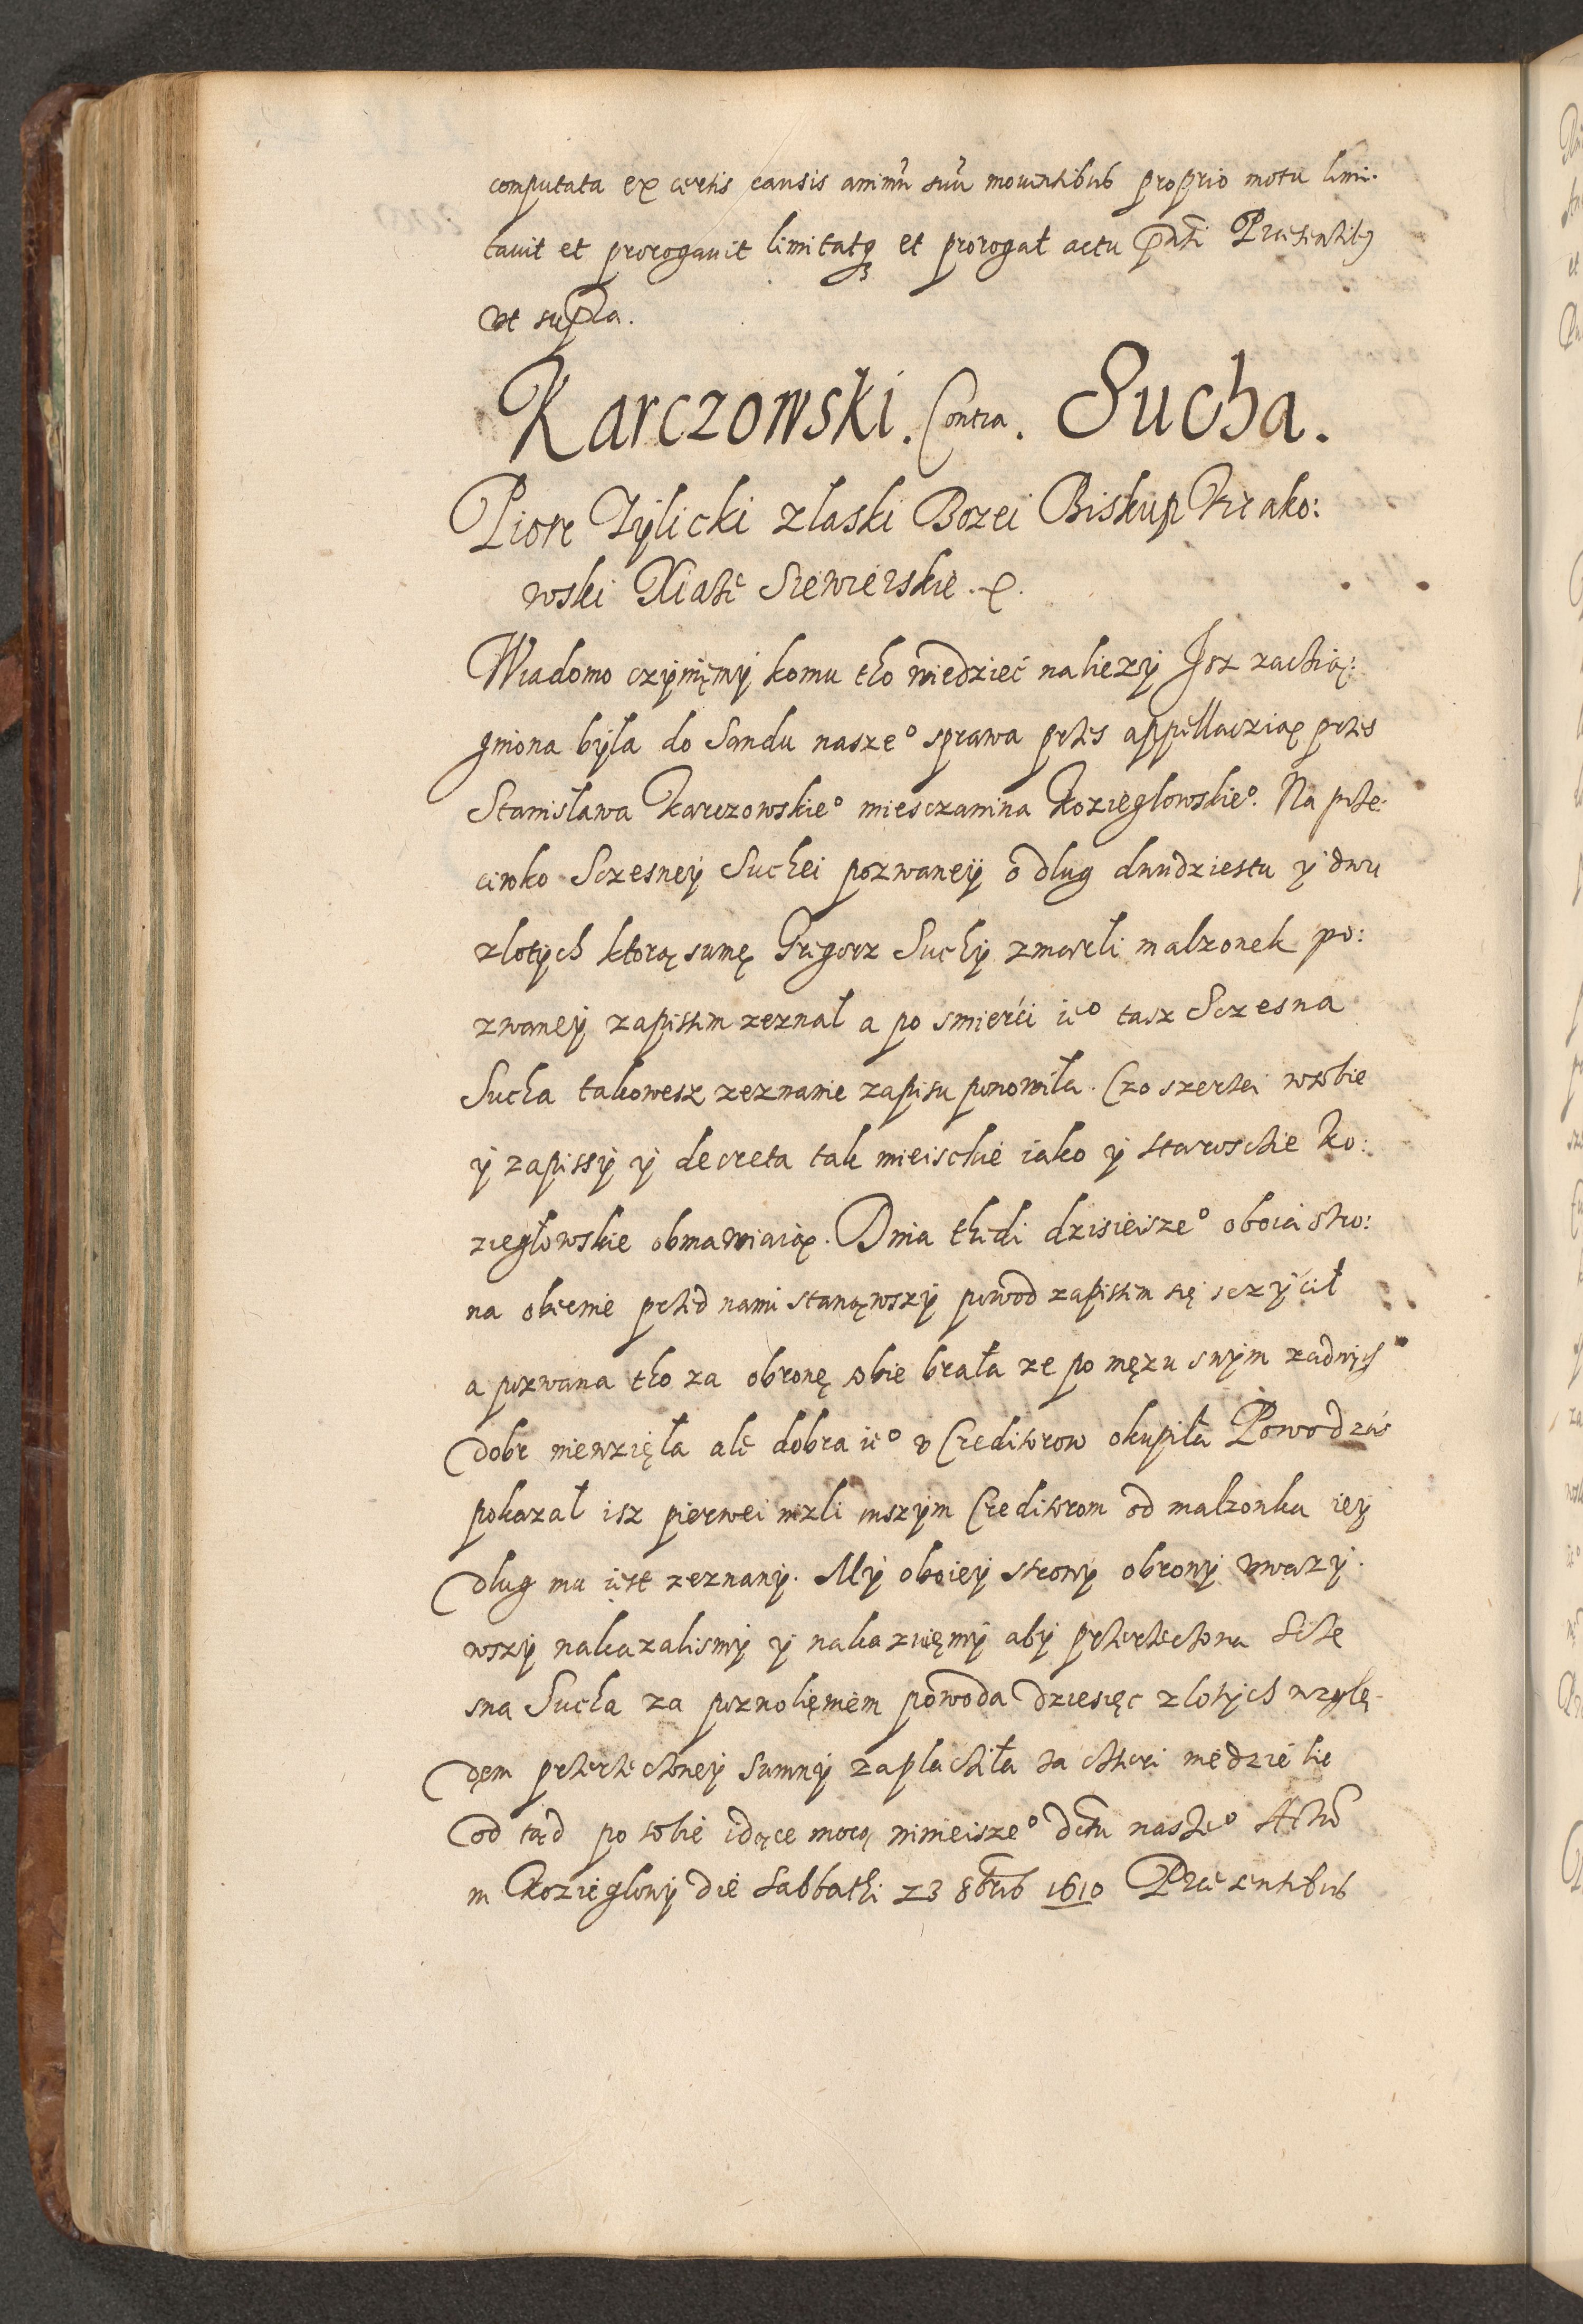 computata ex certis causis animũ suũ mouentibus proprio motu limi-
tauit et prorogauit limitatq3 et prorogat actu pñti Præsentib9
ut supra.
Karczowski. Contra. Sucha.
Piotr Tylicki z laski Bozei Biskup Krako:
wski Xiązę Siewierskie. etc.
Wiadomo czÿnięmÿ komu tho wiedzieć nalieżÿ Isz zachią:
gniona bÿla do Sandu naszeº sprawa przes appellacziaę przes
Stanisława Karczowskieº miesczanina Kozieglowskieº. Na prze-
ciwko Sczesneÿ Suchei pozwaneÿ o dlug dwudziestu ÿ dwu
zlotÿch ktorą sumę Grzegorz Suchÿ zmarli malzonek po:
zwaneÿ zapissem zeznał a po smierći ieº tasz Sczesna
Sucha takowesz zeznanie zapisu ponowiła. Czo szerzei wsobie
ÿ zapissÿ ÿ decreta tak mieisckie iako ÿ staroschie Ko:
ziegłowskie obmawiaiaę. Dnia thedi dzisieiszeº oboia stro:
na obecnie przed nami stanąwszÿ powod zapissem się sczÿcił
a pozwana tho za obronę sobie brała ze po męzu swÿm zadnÿch
dobr niewzięła alę dobra ieº v Creditorow okupiła Powod zaś
pokazał isz pierwei nizli inszÿm Creditorom od malzonka ieÿ
dlug mu iest zeznanÿ. Mÿ oboieÿ stronÿ obronÿ vwazÿ-
wszÿ nakazalismÿ ÿ nakazuięmÿ abÿ przerzeczona Scze
sna Sucha za pozwolięniem powoda dziesięc zlotÿch wzglę-
dęm przerzeczoneÿ summÿ zaplacziła za czteri niedzielie
od tąd po sobie idące mocą ninieiszeº dctu naszeº Actũ
in Kozieglowÿ die Sabbathi 23 8bris 1610 Præsentibus